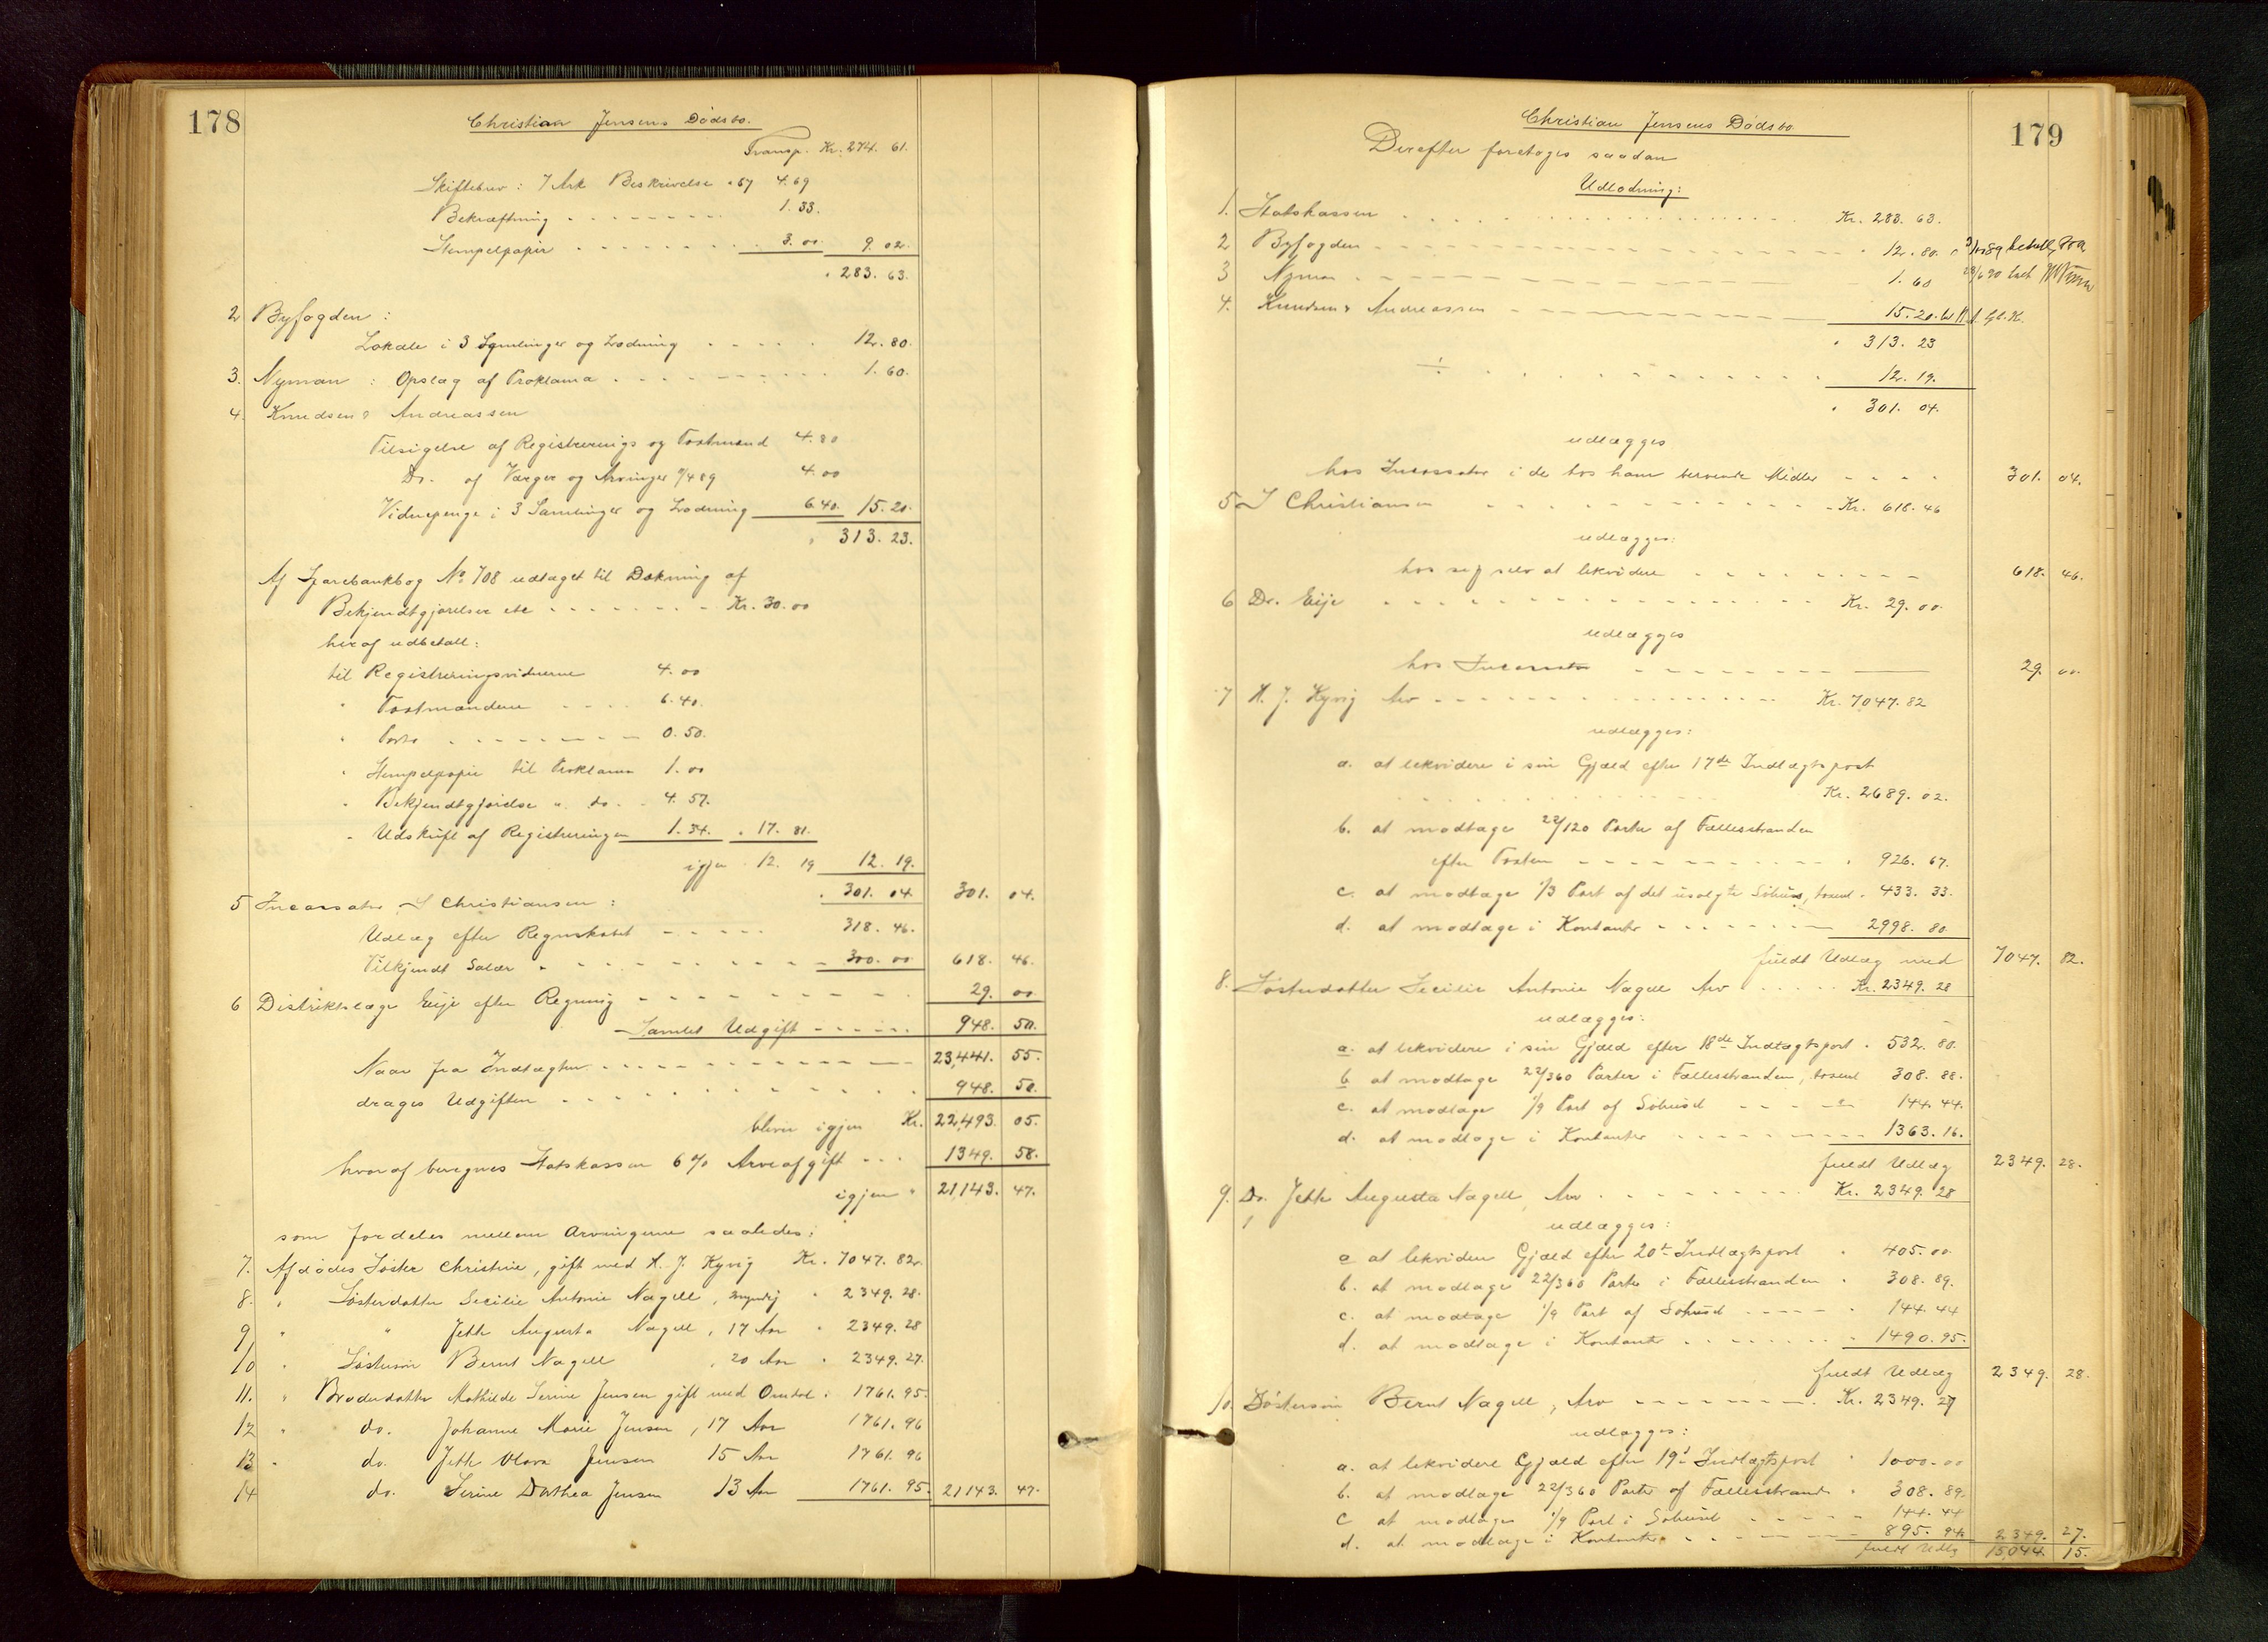 178
Christian Jensens Dödsbo.
Transp. Kr. 274. 61.
Skiftebrev: 7 Ark Beskrivelse .67 4.69
Bekræftning 1.33.
Stempelpapir 3.00 9.02.
" 283.63.
2 Byfogden:
Lokale i 3 Samlinger og Lodning 12.80.
3. Nyman: Opslag af Proklama 1.60.
4. Knudsen & Andreassen
Tilsigelse af Registrerings og Taxtmænd 4.80
Do. af Værger og Arvinger /4 89 4.00
Vidnepenge i 3 Samlinger og Lodning 6.40. 15.20.
" 313.23.
Af Sparebankbog No 708 udtaget til Dækning af
Bekjendtgjørelser etc Kr. 30.00
heraf udbetalt:
til Registreringsvidnerne 4.00
" Taxtmændene 6.40.
" Porto 0.50.
" Stempelpapir til Proklama 1.00
" Bekjendtgjørelse " do. 4.57.
" Udskrift af Registreringen 1.34. " 17.81.
igjen 12.19 12.19.
" 301.04 301.04.
5 Incassator S Christiansen:
Udlæg efter Regnskabet 318.46.
Tilkjendt Salær 300.00 618.46.
6 Distriktslæge Eije efter Regning 29.00
Samlet Udgift 948.50.
Naar fra Indtægten 23,441.55.
drages Udgiften 948.50.
bliver igjen Kr. 22,493.05.
hvoraf beregnes Statskassen 6 % Arveafgift 1349.58.
igjen " 21,143.47.
som fordeles mellem Arvingerne saaledes:
7. Afdödes Söster Christine, gift med H. J. Kyvig Kr. 7047.82.
8. " Sösterdatter Secilie Antonie Nagell, myndig " 2349.28.
9 " " Jette Augusta Nagell, 17 Aar " 2349.28
10 " Söstersön Bernt Nagell, 20 Aar " 2349.27.
11. " Broderdatter Mathilde Serine Jensen gift med Omdal " 1761.95.
12 " do. Johanne Marie Jensen, 17 Aar 1761.96
13 " do. Jette Olava Jensen 15 Aar 1761.96
14 do. Serine Dorthea Jensen 13 Aar 1761.95. 21143.47.
179
Christian Jensens Dödsbo
Derefter foretoges saadan
Udlodning:
1. Statskassen Kr. 283.63.
2 Byfogden " 12.80.
3 Nyman 1.60
4. Knudsen & Andreassen 15.20.
" 313.23
÷ 12.19.
" 301.04.
udlægges
hos Incassator i de hos ham beroende Midler 301.04.
5 S Christiansen Kr. 618.46
udlægges:
hos sig selv at likvidere 618.46.
6 Dr. Eije Kr. 29.00
udlægges
hos Incassator 29.00.
7 H. J. Kyvig Arv Kr. 7047.82
udlægges:
a. at likvidere i sin Gjæld efter 17de Indtægtspost
Kr. 2689.02.
b. at modtage 22/120 Parter af Fællesstranden
efter Taxten " 926.67.
c. at modtage 1/3 Part af det usolgte Söhus, taxeret " 433.33.
d. at modtage i Kontanter 2998.80
fuldt Udlæg med 7047.82.
8. Sösterdatter Secilie Antonie Nagell Arv Kr. 2349.28
udlægges:
a. at likvidere i sin Gjæld efter 18de Indtægtspost " 532.80.
b at modtage 22/360 Parter i Fællesstranden, taxeret 308.88.
c. at modtage 1/9 Part af Söhuset 144.44.
d. at modtage i Kontanter 1363.16.
fuldt Udlæg 2349.28.
9. Do. Jette Augusta Nagell, Arv Kr. 2349.28
udlægges:
a at likvidere Gjæld efter 20t Indtægtspost " 405.00
b. at modtage 22/360 Parter i Fællesstranden " 308.89.
c. at modtage 1/9 Part af Söhuset " 144.44
d. at modtage i Kontanter " 1490.95.
fuldt Udlæg 2349.28.
10. Söstersön Bernt Nagell, Arv Kr. 2349.27
udlægges:
a. at likvidere Gjæld efter 19d Indtægtspost " 1000.00
b. at modtage 22/360 Parter af Fællesstranden " 308.89.
c at modtage 1/9 Part i Söhuset 144.44
d. at modtage i Kontanter 895.94 2349.27.
fuldt Udlg 15,044.15.